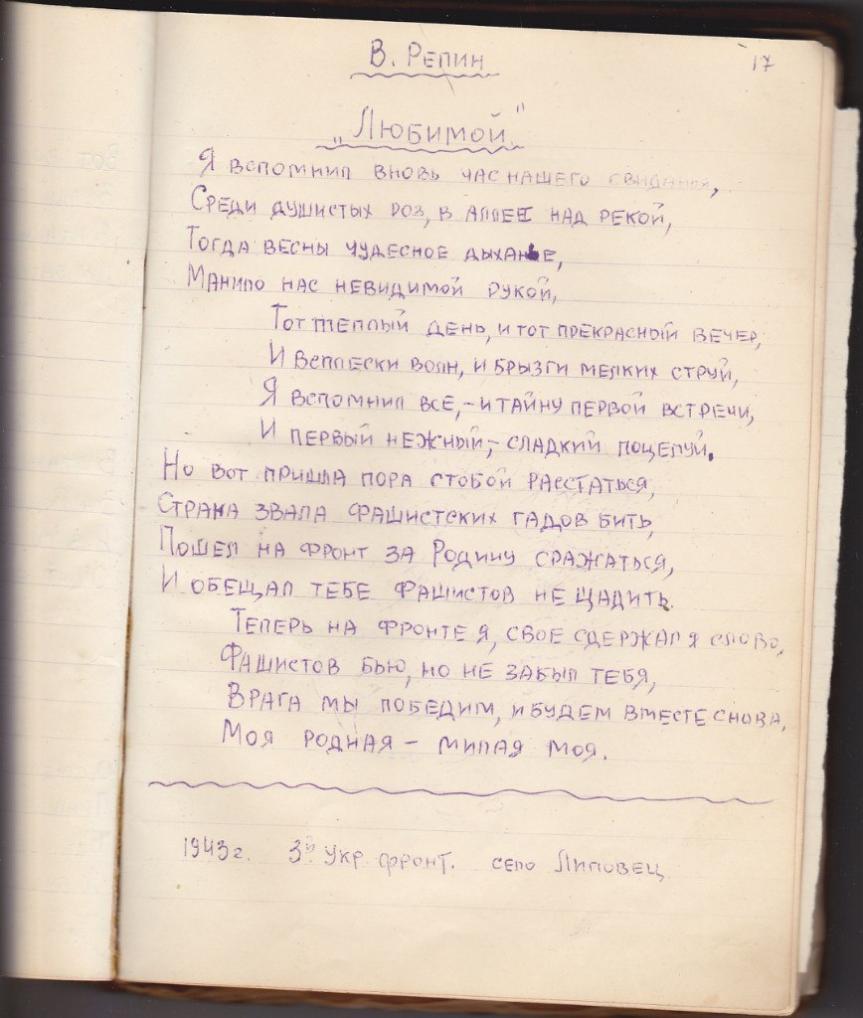 17
В. Репин
„Любимой"
Я вспомнил вновь час нашего свиданья,
Среди душистых роз, в аллее над рекой,
Тогда весны чудесное дыханье,
Манило нас невидимой рукой,
Тот теплый день, и тот прекрасный вечер,
И всплески волн, и брызги мелких струй,
Я вспомнил все,- и тайну первой встречи,
И первый нежный,- сладкий поцелуй.
Но вот пришла пора стобой расстаться,
Страна звала фашистских гадов бить,
Пошел на фронт за Родину сражаться,
И обещал тебе фашистов не щадить.
Теперь на фронте я, свое сдержал я слово,
Фашистов бью, но не забыл тебя,
Врага мы победим, и будем вместе снова,
Моя родная – милая моя.
1943г. 3й Укр. фронт. село Липовец